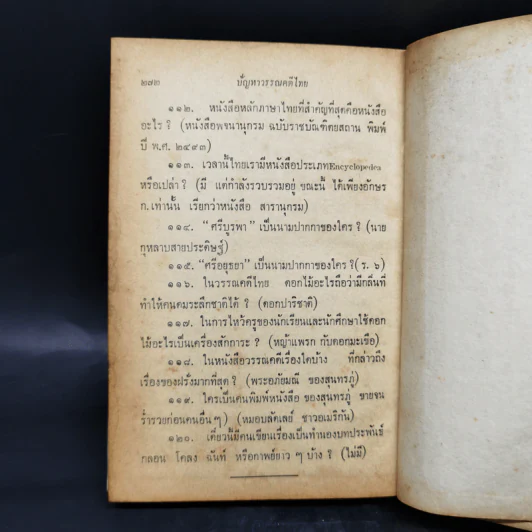 ๒๗๒ ปัญหาวรรณคดีไทย
๑๑๒. หนังสือหลักภาษาไทยที่สำคัญที่สุดคือหนังสือ
อะไร ? (หนังสือพจนานุกรม ฉบับราชบัณฑิตยสถาน พิมพ์
ปี พ.ศ. ๒๔๙๓)
๑๑๓. เวลานี้ไทยเรามีหนังสือประเภทEncyclopedea
หรือเปล่า ? (มี แต่กำลังรวบรวมอยู่ ขณะนี้ ได้เพียงอักษร
ก.เท่านั้น เรียกว่าหนังสือ สารานุกรม)
๑๑๔. “ศรีบูรพา” เป็นนามปากกาของใคร ? (นาย
กุหลาบสายประดิษฐ์)
๑๑๕. “ศรีอยุธยา” เป็นนามปากกาของใคร ? (ร. ๖)
๑๑๖. ในวรรณคดีไทย ดอกไม้อะไรถือว่ามีกลิ่นที่
ทำให้คนดมระลึกชาติได้ ? (ดอกปาริชาติ)
๑๑๗. ในการไหว้ครูของนักเรียนและนักศึกษาใช้ดอก
ไม้อะไรเป็นเครื่องสักการะ ? (หญ้าแพรก กับดอกมะเขือ)
๑๑๘. ในหนังสือวรรณคดีเรื่องใดบ้าง ที่กล่าวถึง
เรื่องของฝรั่งมากที่สุด ? (พระอภัยมณี ของสุนทรภู่)
๑๑๙. ใครเป็นคนพิมพ์หนังสือ ของสุนทรภู่ ขายจน
ร่ำรวยก่อนคนอื่น ๆ ) (หมอบลัดเลย์ ชาวอเมริกัน)
๑๒๐. เดี๋ยวนี้มีคนเขียนเรื่องเป็นทำนองบทประพันธ์
กลอน โคลง ฉันท์ หรือกาพย์ยาว ๆ บ้าง ? (ไม่มี)